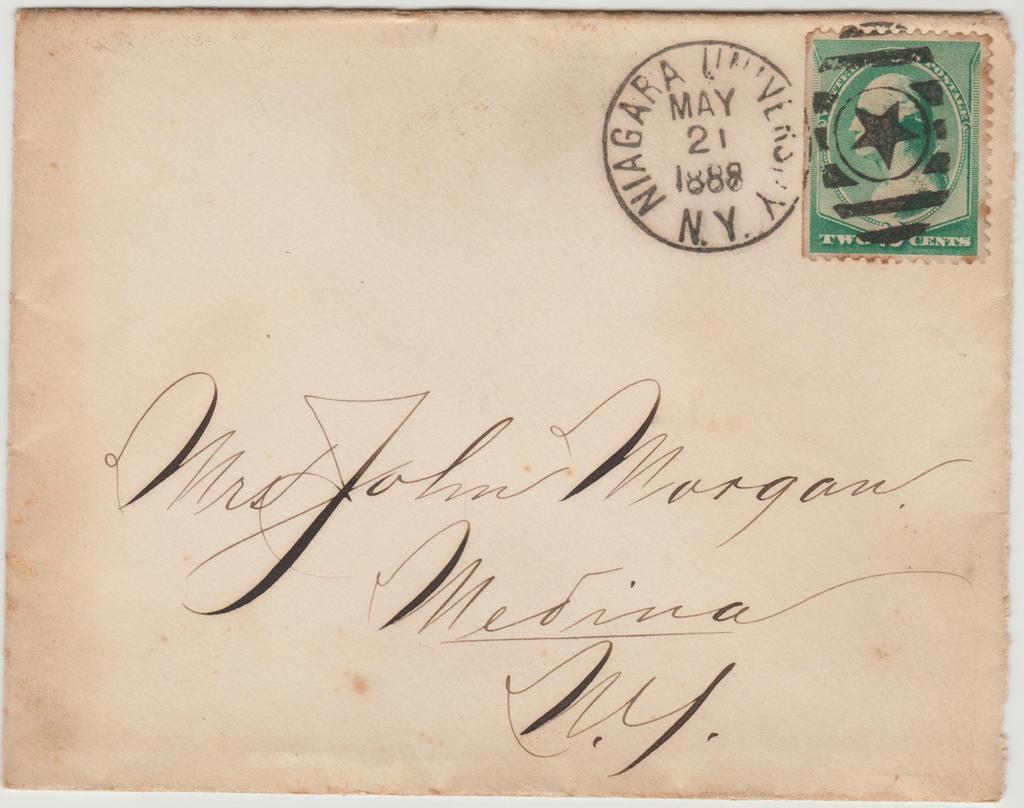 NIAGARA UNIVERSITY
MAY
21
1888
N.Y.
POSTAGE
TWO CENTS
Mrs John Morgan.
Medina
N.Y.